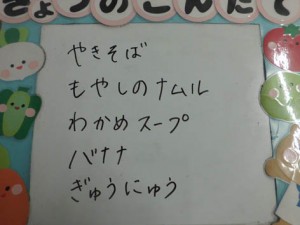 きょうのこんだて
やきそば
もやしのナムル
わかめスープ
バナナ
ぎゅうにゅう